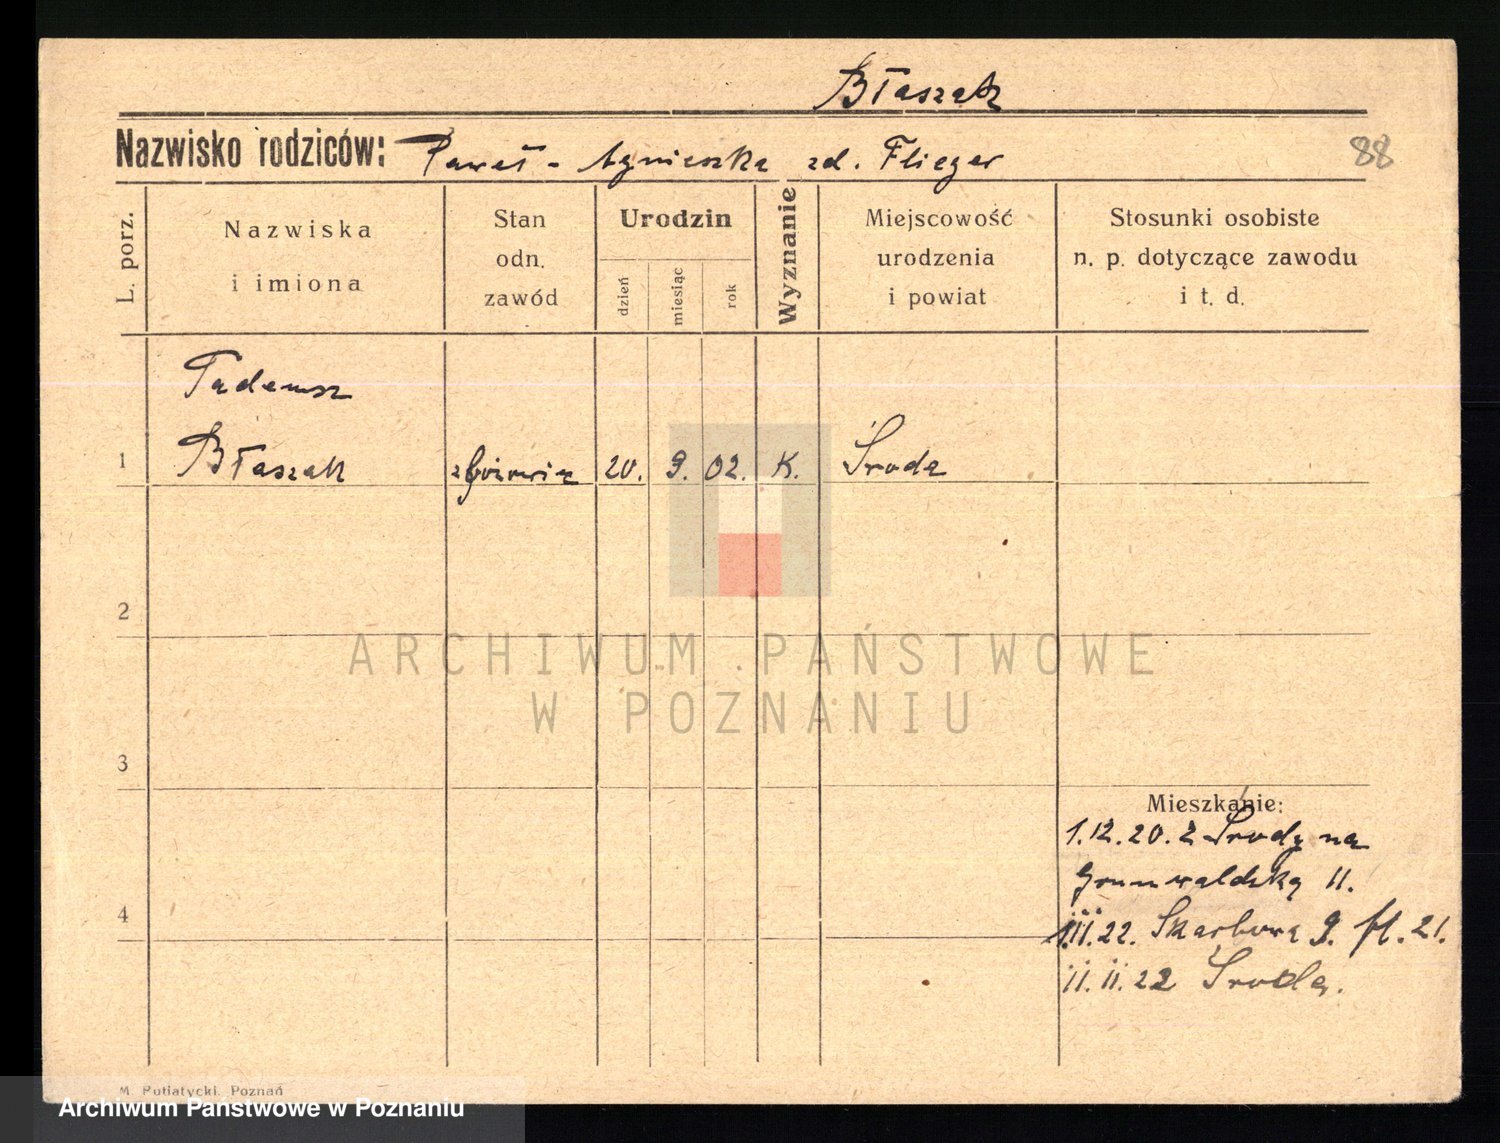 Błaszak
Nazwisko rodziców: Paweł - Agnieszka zd. Flieger
88
L. porz.
Nazwiska
i imiona
Stan
odn.
zawód
Urodzin
dzień
miesiąc
rok
Wyznanie
Miejscowość
urodzenia
i powiat
Stosunki osobiste
n. p. dotyczące zawodu
i t. d.
Tadeusz
1 Błaszak 20. 9. 02. K. Środa
2
ARCHIWUM PAŃSTWOWE
W POZNANIU
3
Mieszkanie:
1.12.20. z Środy na
Grunwaldzką 11.
4
III.22. Skarbowa 9. fl. 21.
11.11.22 Środa.
M. Putiatycki, Poznań
Archiwum Państwowe w Poznaniu